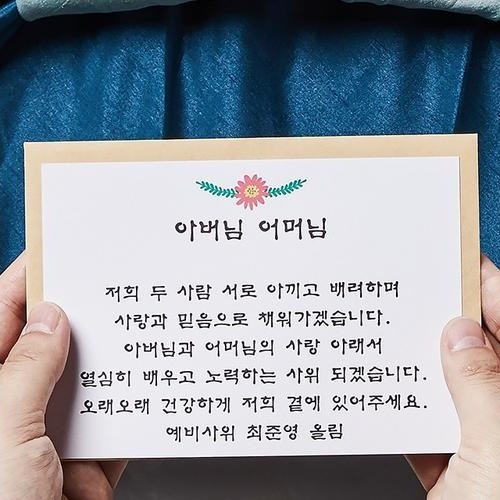 아버님 어머님
저희 두 사람 서로 아끼고 배려하며
사랑과 믿음으로 채워가겠습니다.
아버님과 어머님의 사랑 아래서
열심히 배우고 노력하는 사위 되겠습니다.
오래오래 건강하게 저희 곁에 있어주세요.
예비사위 최준영 올림